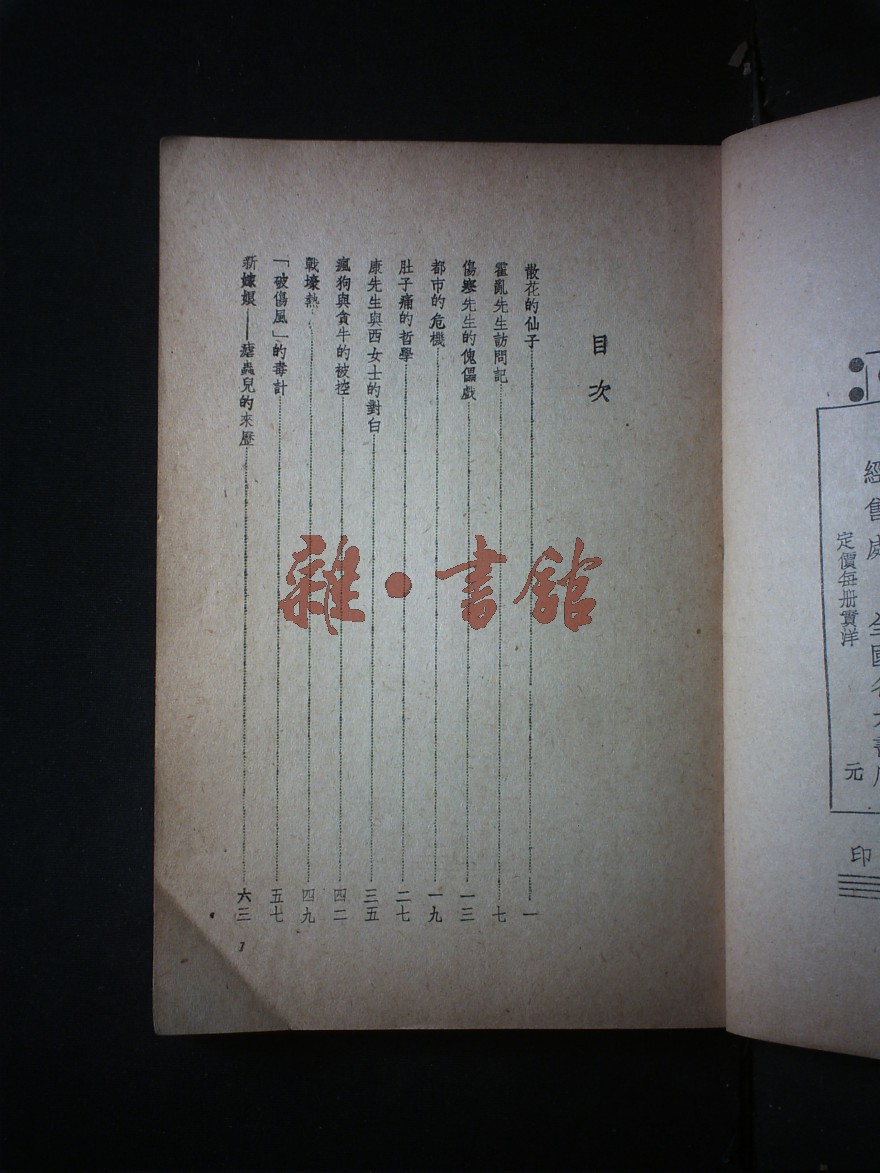 經售處 全國各大書
定價每册實洋 元
印
目次
散花的仙子……一
霍亂先生訪問記……七
傷寒先生的傀儡戲……一三
都市的危機……一九
肚子痛的哲學……二七
康先生與西女士的對白……三五
瘋狗與貪牛的被控……四二
戰壕熱……四九
「破傷風」的毒計……五七
新嫁娘——瘧蟲兒的來歷……六三
1
雜·書館